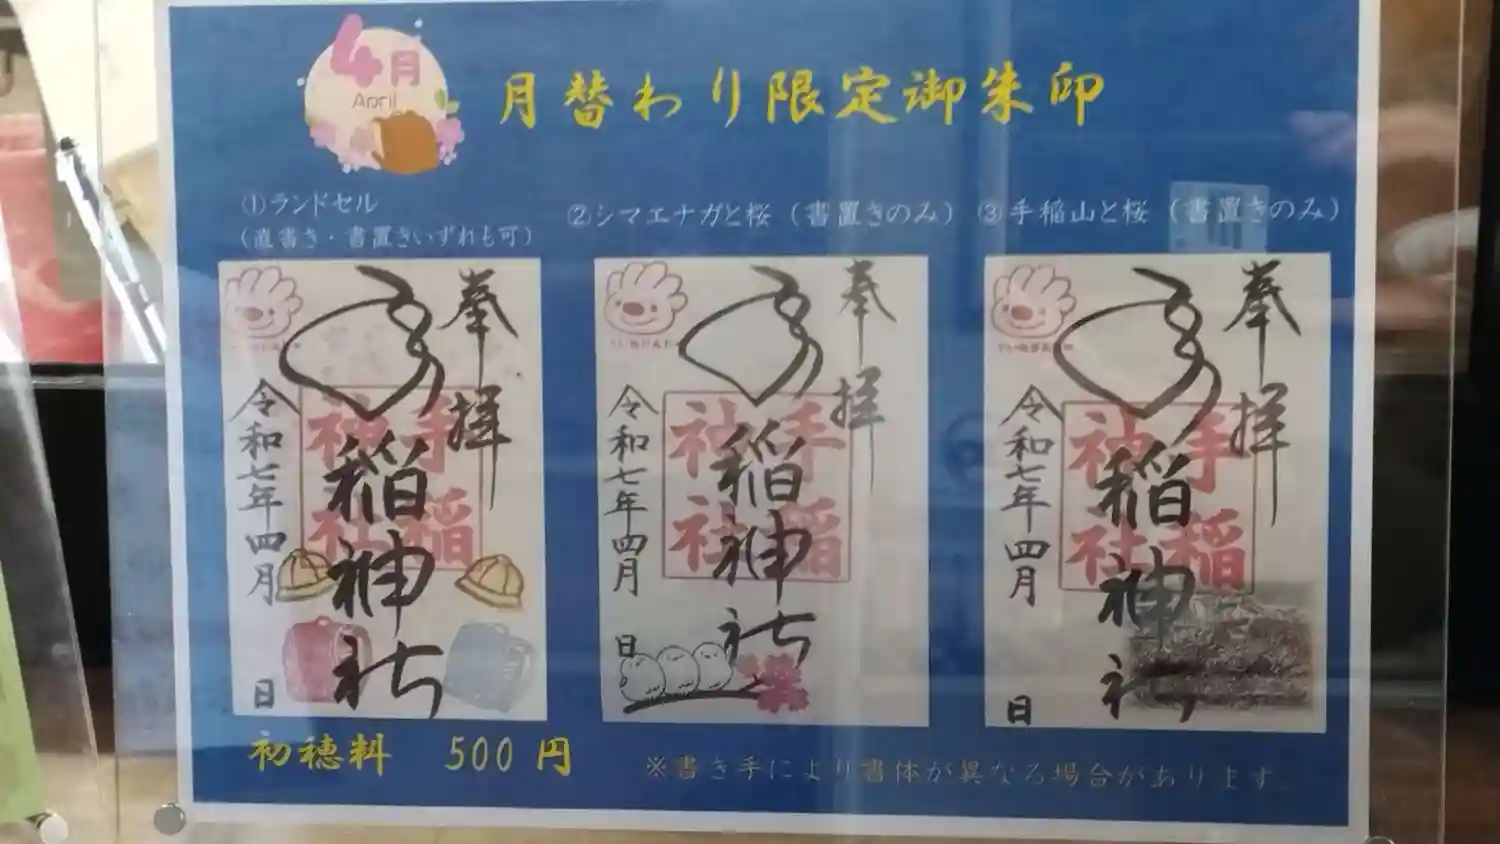 4月
April
月替わり限定御朱印
①ランドセル
（直書き・書置きいずれも可）
②シマエナガと桜（書置きのみ）
③手稲山と桜（書置きのみ）
奉拝
手稲神社
手稲神社
令和七年四月 日
奉拝
手稲神社
手稲神社
令和七年四月 日
奉拝
手稲神社
手稲神社
令和七年四月 日
初穂料 500円
※書き手により書体が異なる場合があります。